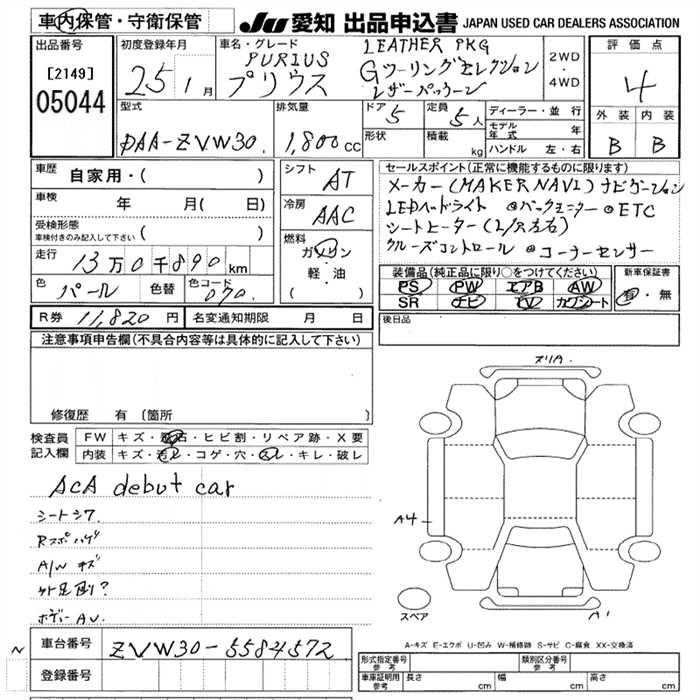 車内保管・守衛保管
JU 愛知 出品申込書 JAPAN USED CAR DEALERS ASSOCIATION
出品番号
[2149]
05044
初度登録年月
25年 1月
車名・グレード
PURIUS
プリウス
LEATHER PKG
Gツーリングセレクション
レザーパッケージ
2WD
・
4WD
評価点
4
型式
DAA-ZVW30
排気量
1,800 CC
ドア
5
定員
5人
形状
積載
kg
ディーラー・並行
モデル年式 年
ハンドル 左・右
外装
B
内装
B
車歴
自家用・( )
車検
年 月( 日)
受検形態
車検付きのみ記入して下さい ( )
走行
13万0千890km
色
パール
色替
色コード
070
シフト
AT
冷房
AAC
燃料
ガソリン
軽・油
( )
セールスポイント(正常に機能するものに限ります)
メーカー(MAKER NAVI)ナビゲーション
LEDヘッドライト @バックモニター @ETC
シートヒーター(L/R左右)
クルーズコントロール @コーナーセンサー
装備品(純正品に限り○をつけてください)
PS PW エアB AW
SR ナビ TV カワシート
新車保証書
有・無
R券 11,820円
名変通知期限 月 日
後日品
注意事項申告欄(不具合内容等は具体的に記入して下さい)
修復歴 有(箇所 )
検査員
記入欄
FW キズ・飛石・ヒビ割・リペア跡・X要
内装 キズ・汚レ・コゲ・穴・スレ・キレ・破レ
ACA debut car
シートシワ
Rスポハゲ
A/W キズ
外足廻り?
ボディーAU
スリA
A4
A1
スペア
A-キズ E-エクボ U-凹み W-補修跡 S-サビ C-腐食 XX-交換済
~
車台番号
ZVW30-5584572
登録番号
形式指定番号
参考
類別区分番号
参考
車庫証明用
参考
長さ cm
幅 cm
高さ cm